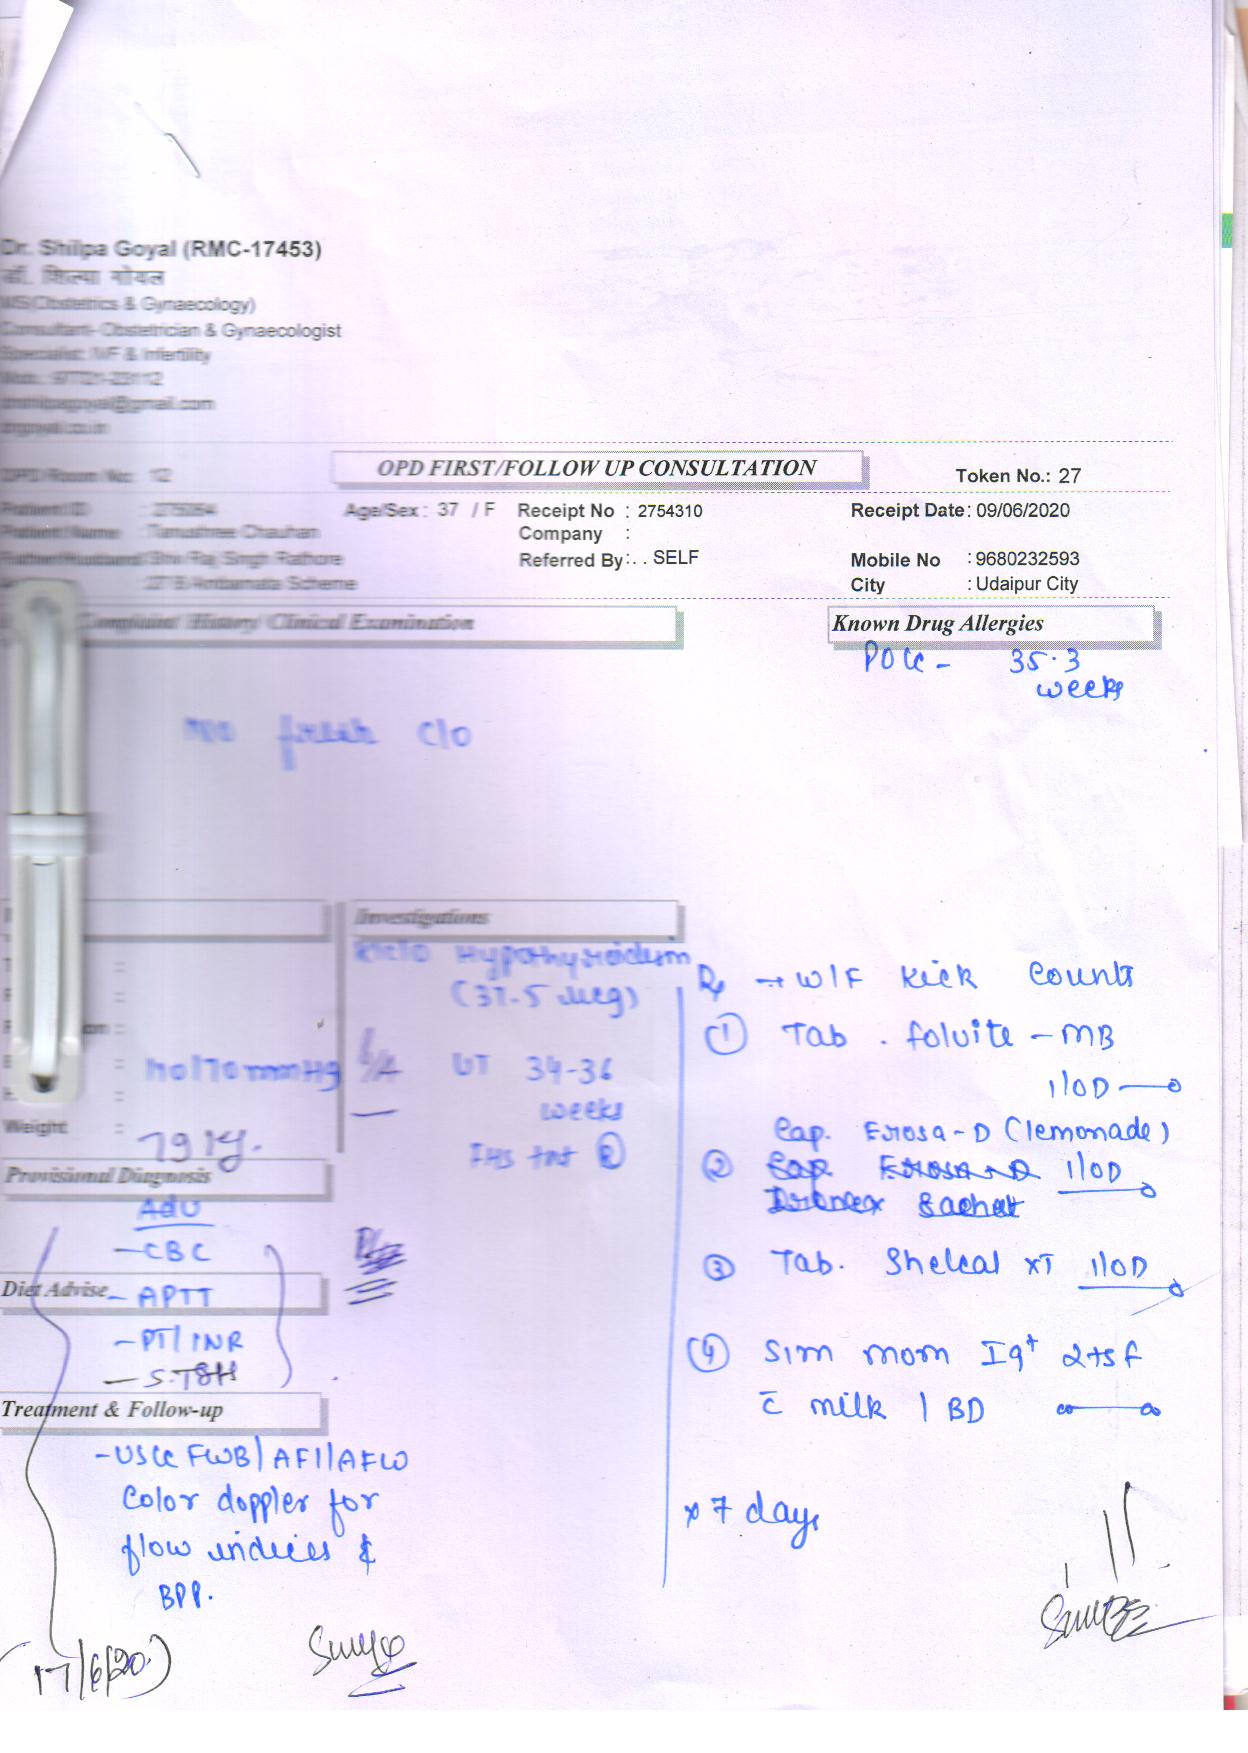 Dr. Shilpa Goyal (RMC-17453)
डॉ. शिल्पा गोयल
MS(Obstetrics & Gynaecology)
Consultant- Obstetrician & Gynaecologist
Specialist: IVF & Infertility
drgoyal.co.in
OPD Room No: 12
OPD FIRST/FOLLOW UP CONSULTATION
Token No.: 27
Patient ID
Age/Sex : 37 / F
Receipt No : 2754310
Receipt Date: 09/06/2020
Patient Name : Tanushree Chauhan
Company :
Father/Husband: Shiv Raj Singh Rathore
Referred By: . . SELF
Mobile No : 9680232593
Ambamata Scheme
City : Udaipur City
Complaint/ History/ Clinical Examination
Known Drug Allergies
POG - 35.3
weeks
No fresh c/o
Investigations
Hypothyroidism
(37.5 mcg)
110/70 mmHg
P/A UT 34-36
weeks
FHS
Weight : 79 kg.
Provisional Diagnosis
Adv
- CBC
Diet Advise
- APTT
- PT/INR
- S.TSH
Treatment & Follow-up
- USG FWB/AFI/AFW
Color doppler for
flow indices &
BPP.
17/6/20
Rx → W/F Kick Counts
① Tab . folvite - MB
1/OD
Cap. Erosa-D (lemonade)
② Cap. 1/OD
Sachet
③ Tab. Shelcal XT 1/OD
④ Sim mom IQ+ 2tsf
c̄ milk / BD
x 7 days